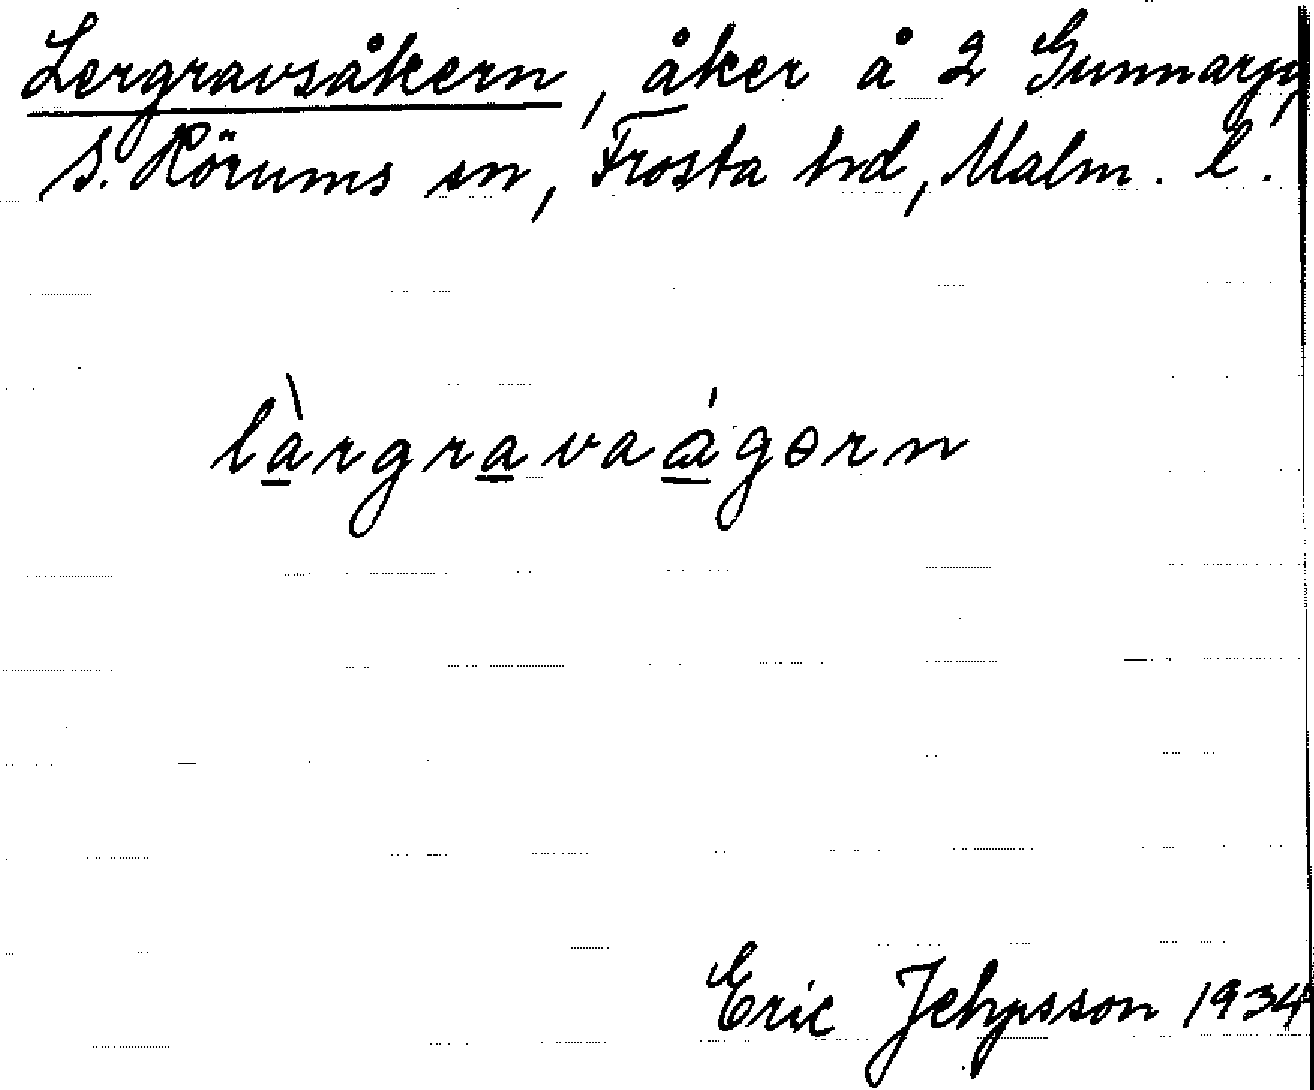 Lergravsåkern, åker å 2 Gunnarp,
S. Hörums sn, Frosta hd, Malm. l.
làrgravaágərn
Eric 1934